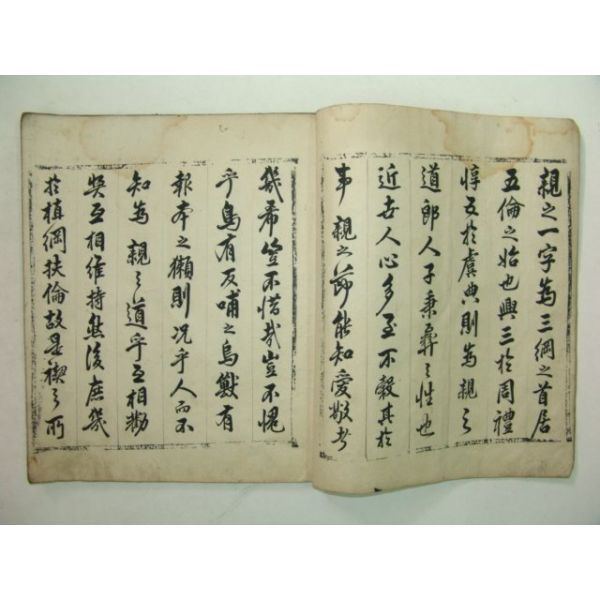 親之一字為三綱之首居
五倫之始也興三於周禮
惇五於虞典則為親之
道郎人子秉彝之性也
近古人心多至不穀其於
事親之節能知愛敬者
幾希豈不惜哉豈不愧
乎鳥有反哺之烏獸有
報本之獺則況乎人而不
知為親之道乎互相勸
奬互相維持然後庶幾
於植綱扶倫故是禊之所